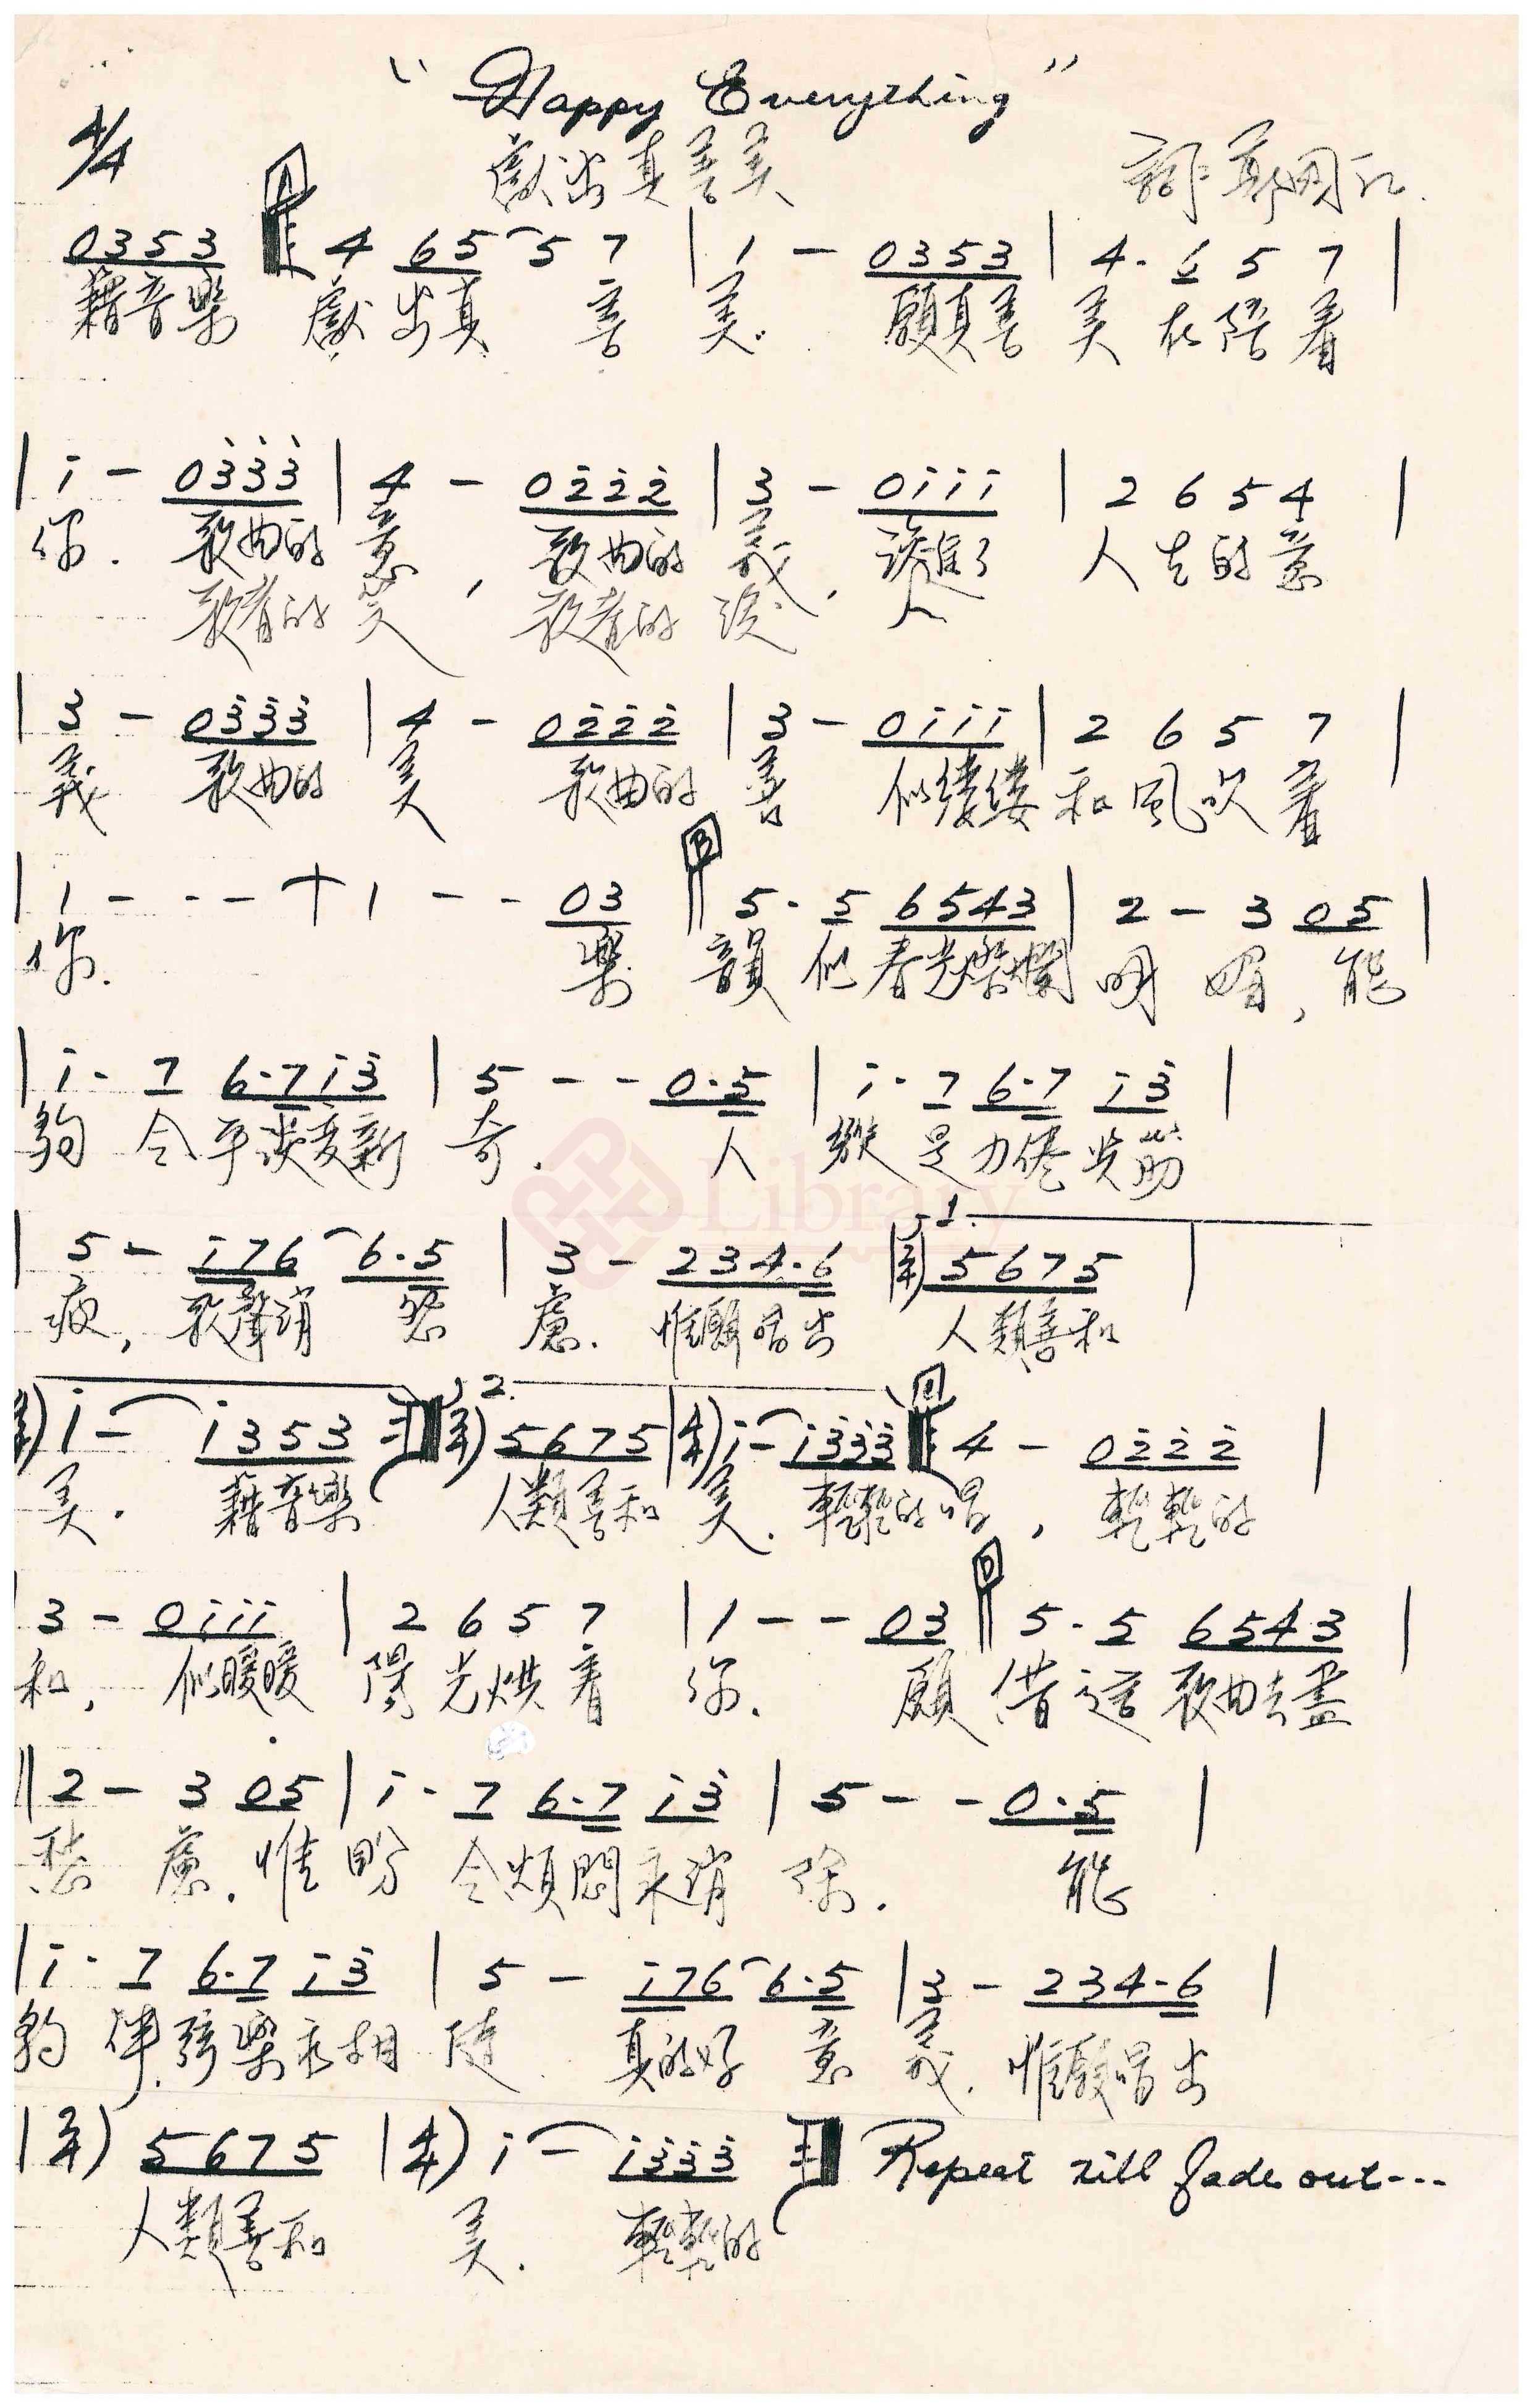 " Happy Everything "
4/4 獻出真善美 詞: 鄭國江
A
0353 ‖: 4 65 5 7 | 1 - 0353 | 4. 6 5 7 |
藉音樂 獻出真 善 美. 願真善 美 在陪着
| i - 0333 | 4 - 0222 | 3 - 0iii | 2 6 5 4 |
你. 歌曲的 意, 歌曲的 義, 譜進了 人生的意
歌者的 笑 歌者的 淚 人
3 - 0333 | 4 - 0222 | 3 - 0iii | 2 6 5 7 |
義 歌曲的 美 歌曲的 善 似縷縷 和風吹着
B
| 1 - - - | 1 - - 03 ‖ 5. 5 6543 | 2 - 3 05 |
你. 樂 韻似春光燦爛 明媚, 能
| i. 7 6.7 i3 | 5 - - 0.5 | i. 7 6.7 i3 |
夠 令平淡變新 奇. 人 縱是力倦 筋
Library
1.
| 5 - i76 6.5 | 3 - 234.6 | 2/4) 5675 |
疲, 歌聲消 愁 慮. 惟願唱出 人類善和
2. C
4/4) i - i353 :‖ 2/4) 5675 | 4/4) i - i333 ‖: 4 - 0222 |
美. 藉音樂 人類善和 美. 輕輕的唱, 輕輕的
D
3 - 0iii | 2 6 5 7 | 1 - - 03 ‖ 5. 5 6543 |
和, 似暖暖 陽光烘着 你. 願 借這歌曲去盡
‖ 2 - 3 05 | i. 7 6.7 i3 | 5 - - 0.5 |
愁 慮. 惟盼 令煩悶永消 除. 能
| i. 7 6.7 i3 | 5 - i76 6.5 | 3 - 234.6 |
夠 伴弦樂永相 隨 真的好 意 義. 惟願唱出
| 2/4) 5675 | 4/4) i - i333 :‖ Repeat till fade out---
人類善和 美. 輕輕的